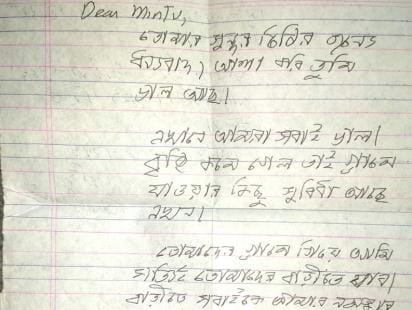 Dear Mintu,
তোমার সুন্দর চিঠির জন্যে
ধন্যবাদ। আশা করি তুমি
ভাল আছ।
এখানে আমরা সবাই ভাল।
বৃষ্টি কমে গেল তাই গ্রামে
যাওয়ার কিছু সুবিধা আছে
এখন।
তোমাদের গ্রামে গিয়ে আমি
সত্যিই তোমাদের বাড়ীতে যাব।
বাড়ীতে সবাইকে আমার নমস্কার